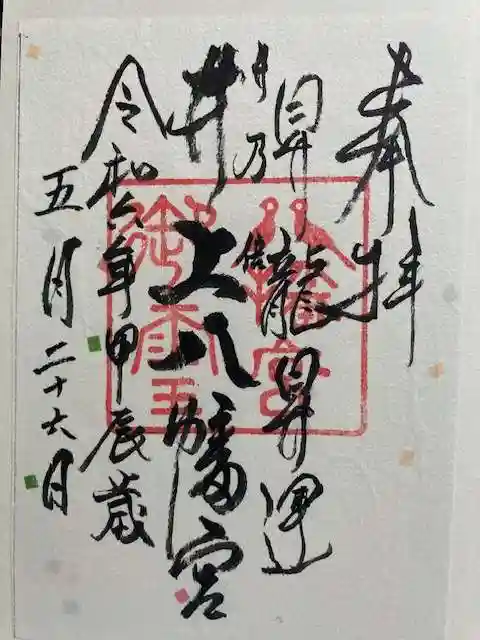 奉拝
昇龍昇運
井上八幡宮
令和六年甲辰歳
五月二十六日
八幡宮